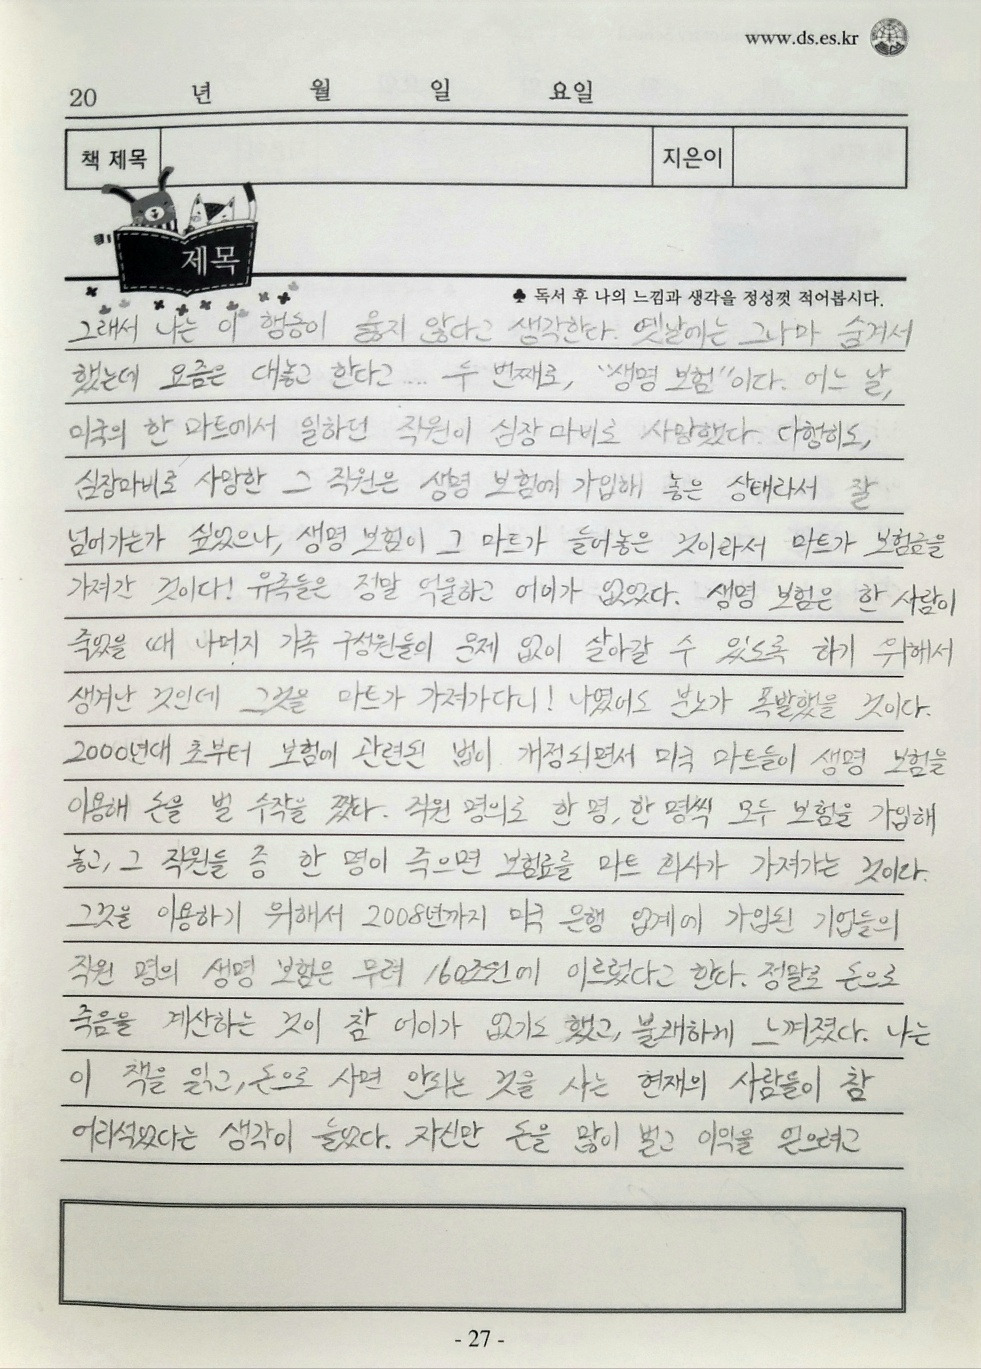 www.ds.es.kr
20 년 월 일 요일
책 제목 지은이
제목
♣ 독서 후 나의 느낌과 생각을 정성껏 적어봅시다.
그래서 나는 이 행동이 옳지 않다고 생각한다. 옛날에는 그나마 숨겨서
했는데 요즘은 대놓고 한다고.... 두 번째로, "생명 보험"이다. 어느 날,
미국의 한 마트에서 일하던 직원이 심장 마비로 사망했다. 다행히도,
심장마비로 사망한 그 직원은 생명 보험에 가입해 놓은 상태라서 잘
넘어가는가 싶었으나, 생명 보험이 그 마트가 들어놓은 것이라서 마트가 보험료를
가져간 것이다! 유족들은 정말 억울하고 어이가 없었다. 생명 보험은 한 사람이
죽었을 때 나머지 가족 구성원들이 문제 없이 살아갈 수 있도록 하기 위해서
생겨난 것인데 그것을 마트가 가져가다니! 나였어도 분노가 폭발했을 것이다.
2000년대 초부터 보험에 관련된 법이 개정되면서 미국 마트들이 생명 보험을
이용해 돈을 벌 수작을 짰다. 직원 명의로 한 명, 한 명씩 모두 보험을 가입해
놓고, 그 직원들 중 한 명이 죽으면 보험료를 마트 회사가 가져가는 것이다.
그것을 이용하기 위해서 2008년까지 미국 은행 업계에 가입된 기업들의
직원 명의 생명 보험은 무려 160조원에 이르렀다고 한다. 정말로 돈으로
죽음을 계산하는 것이 참 어이가 없기도 했고, 불쾌하게 느껴졌다. 나는
이 책을 읽고, 돈으로 사면 안되는 것을 사는 현재의 사람들이 참
어리석었다는 생각이 들었다. 자신만 돈을 많이 벌고 이익을 얻으려고
- 27 -